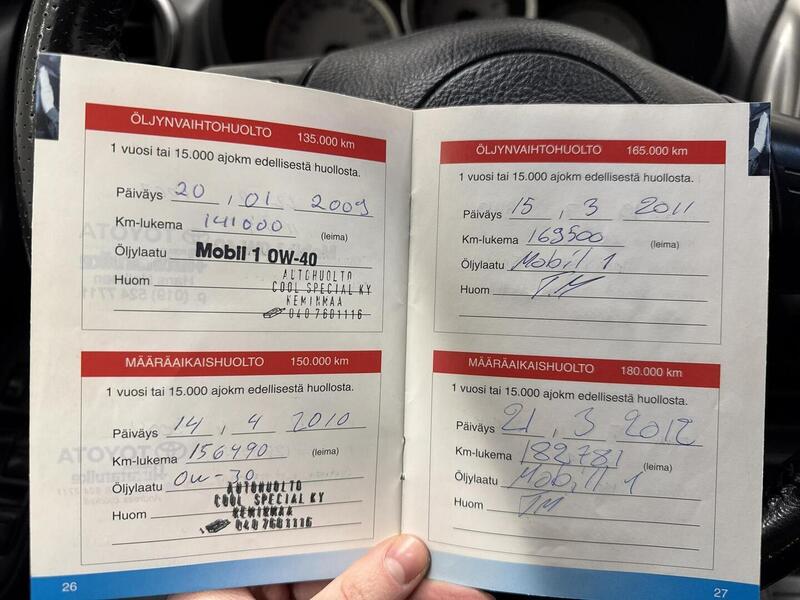 ÖLJYNVAIHTOHUOLTO 135.000 km
1 vuosi tai 15.000 ajokm edellisestä huollosta.
Päiväys 20 , 01 2009
Km-lukema 141000
(leima)
Öljylaatu Mobil 1 0W-40
Huom
AUTOHUOLTO
COOL SPECIAL KY
KEMINMAA
040 7601116
MÄÄRÄAIKAISHUOLTO 150.000 km
1 vuosi tai 15.000 ajokm edellisestä huollosta.
Päiväys 14 , 4 2010
Km-lukema 156490
(leima)
Öljylaatu 0w-30
Huom
AUTOHUOLTO
COOL SPECIAL KY
KEMINMAA
040 7601116
26
ÖLJYNVAIHTOHUOLTO 165.000 km
1 vuosi tai 15.000 ajokm edellisestä huollosta.
Päiväys 15 , 3 2011
Km-lukema 169500 (leima)
Öljylaatu Mobil 1
Huom TM
MÄÄRÄAIKAISHUOLTO 180.000 km
1 vuosi tai 15.000 ajokm edellisestä huollosta.
Päiväys 21 , 3 2012
Km-lukema 182781 (leima)
Öljylaatu Mobil 1
Huom TM
27